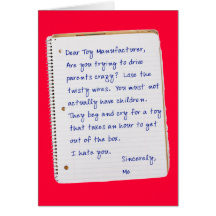 Dear Toy Manufacturer,
Are you trying to drive
parents crazy? Lose the
twisty wires. You must not
actually have children.
They beg and cry for a toy
that takes an hour to get
out of the box.
I hate you.
Sincerely,
Me